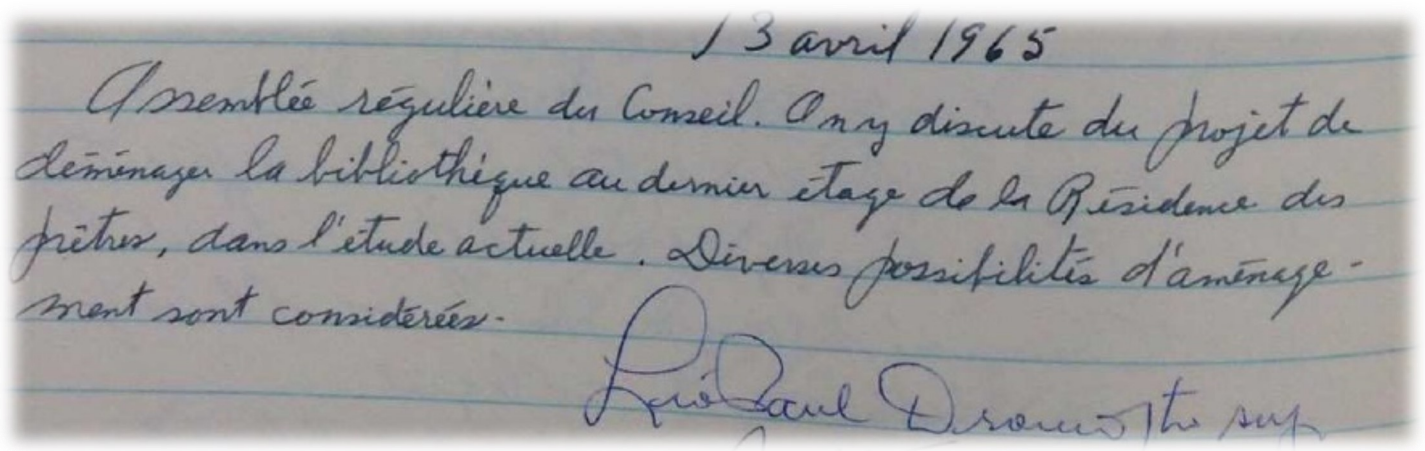 13 avril 1965
Assemblée régulière du Conseil. On y discute du projet de
déménager la bibliothèque au dernier étage de la Résidence des
prêtres, dans l'étude actuelle. Diverses possibilités d'aménage-
ment sont considérées.
Léo Paul ptre sup